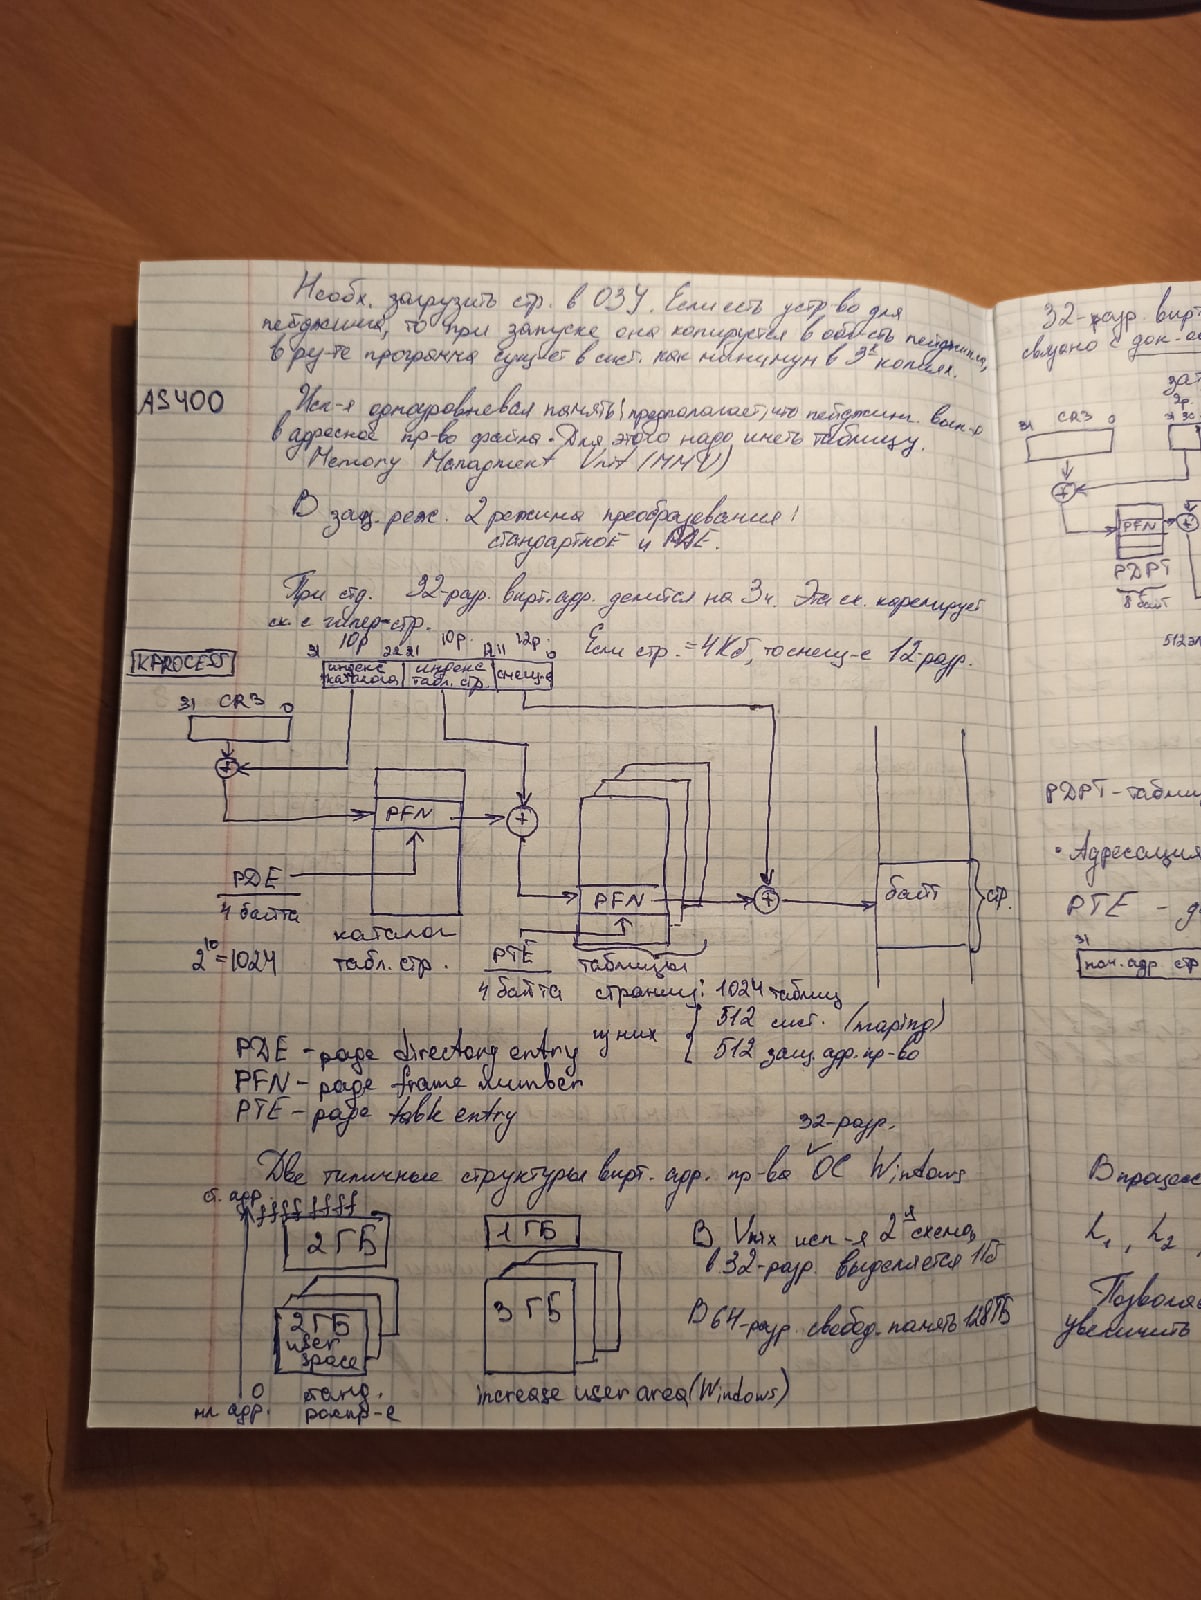 Необх. загрузить стр. в ОЗУ. Если есть устр-во для
пейджинга, то при запуске она копируется в область пейджинга,
в рез-те программа сущ-ет в сист. как минимум в 3х копиях.
AS400
Исп-я одноуровневая память! предполагает, что пейджинг вып-ся
в адресное пр-во файла. Для этого надо иметь таблицу.
Memory Managment Unit (MMU)
В защ. реж. 2 режима преобразования!
стандартное и PAE.
При стд. 32-разр. вирт. адр. делится на 3 ч. Эта сх. корелирует
сх. с гипер-стр.
31 10р 22 21 10р. 12 11 12р. 0
Если стр. = 4Кб, то смещ-е 12-разр.
KPROCESS
индекс каталога
индекс табл. стр.
смещ-е
31 CR3 0
PFN
PDE
4 байта
2^10=1024
каталог
табл. стр.
PFN
PTE
4 байта
таблицы
страниц: 1024 таблиц
из них
512 сист. (maping)
512 защ. адр. пр-во
байт
стр.
PDE - page directory entry
PFN - page frame number
PTE - page table entry
32-разр.
Две типичные структуры вирт. адр. пр-ва ОС Windows
ст. адр.
ffff ffff
2 ГБ
2 ГБ
user
space
0
мл. адр.
станд.
распр-е
1 ГБ
3 ГБ
increase user area (Windows)
В Unix исп-я 2я схема,
в 32-разр. выделяется 1Гб
В 64-разр. свобод. память 128ТБ
32-разр. вирт
связано с
31 CR3 0
PFN
PDPT
8 байт
PDPT - таблиц
• Адресация
PTE -
31
нач. адр. стр
В процесс
L1, L2
Позволя
увеличить